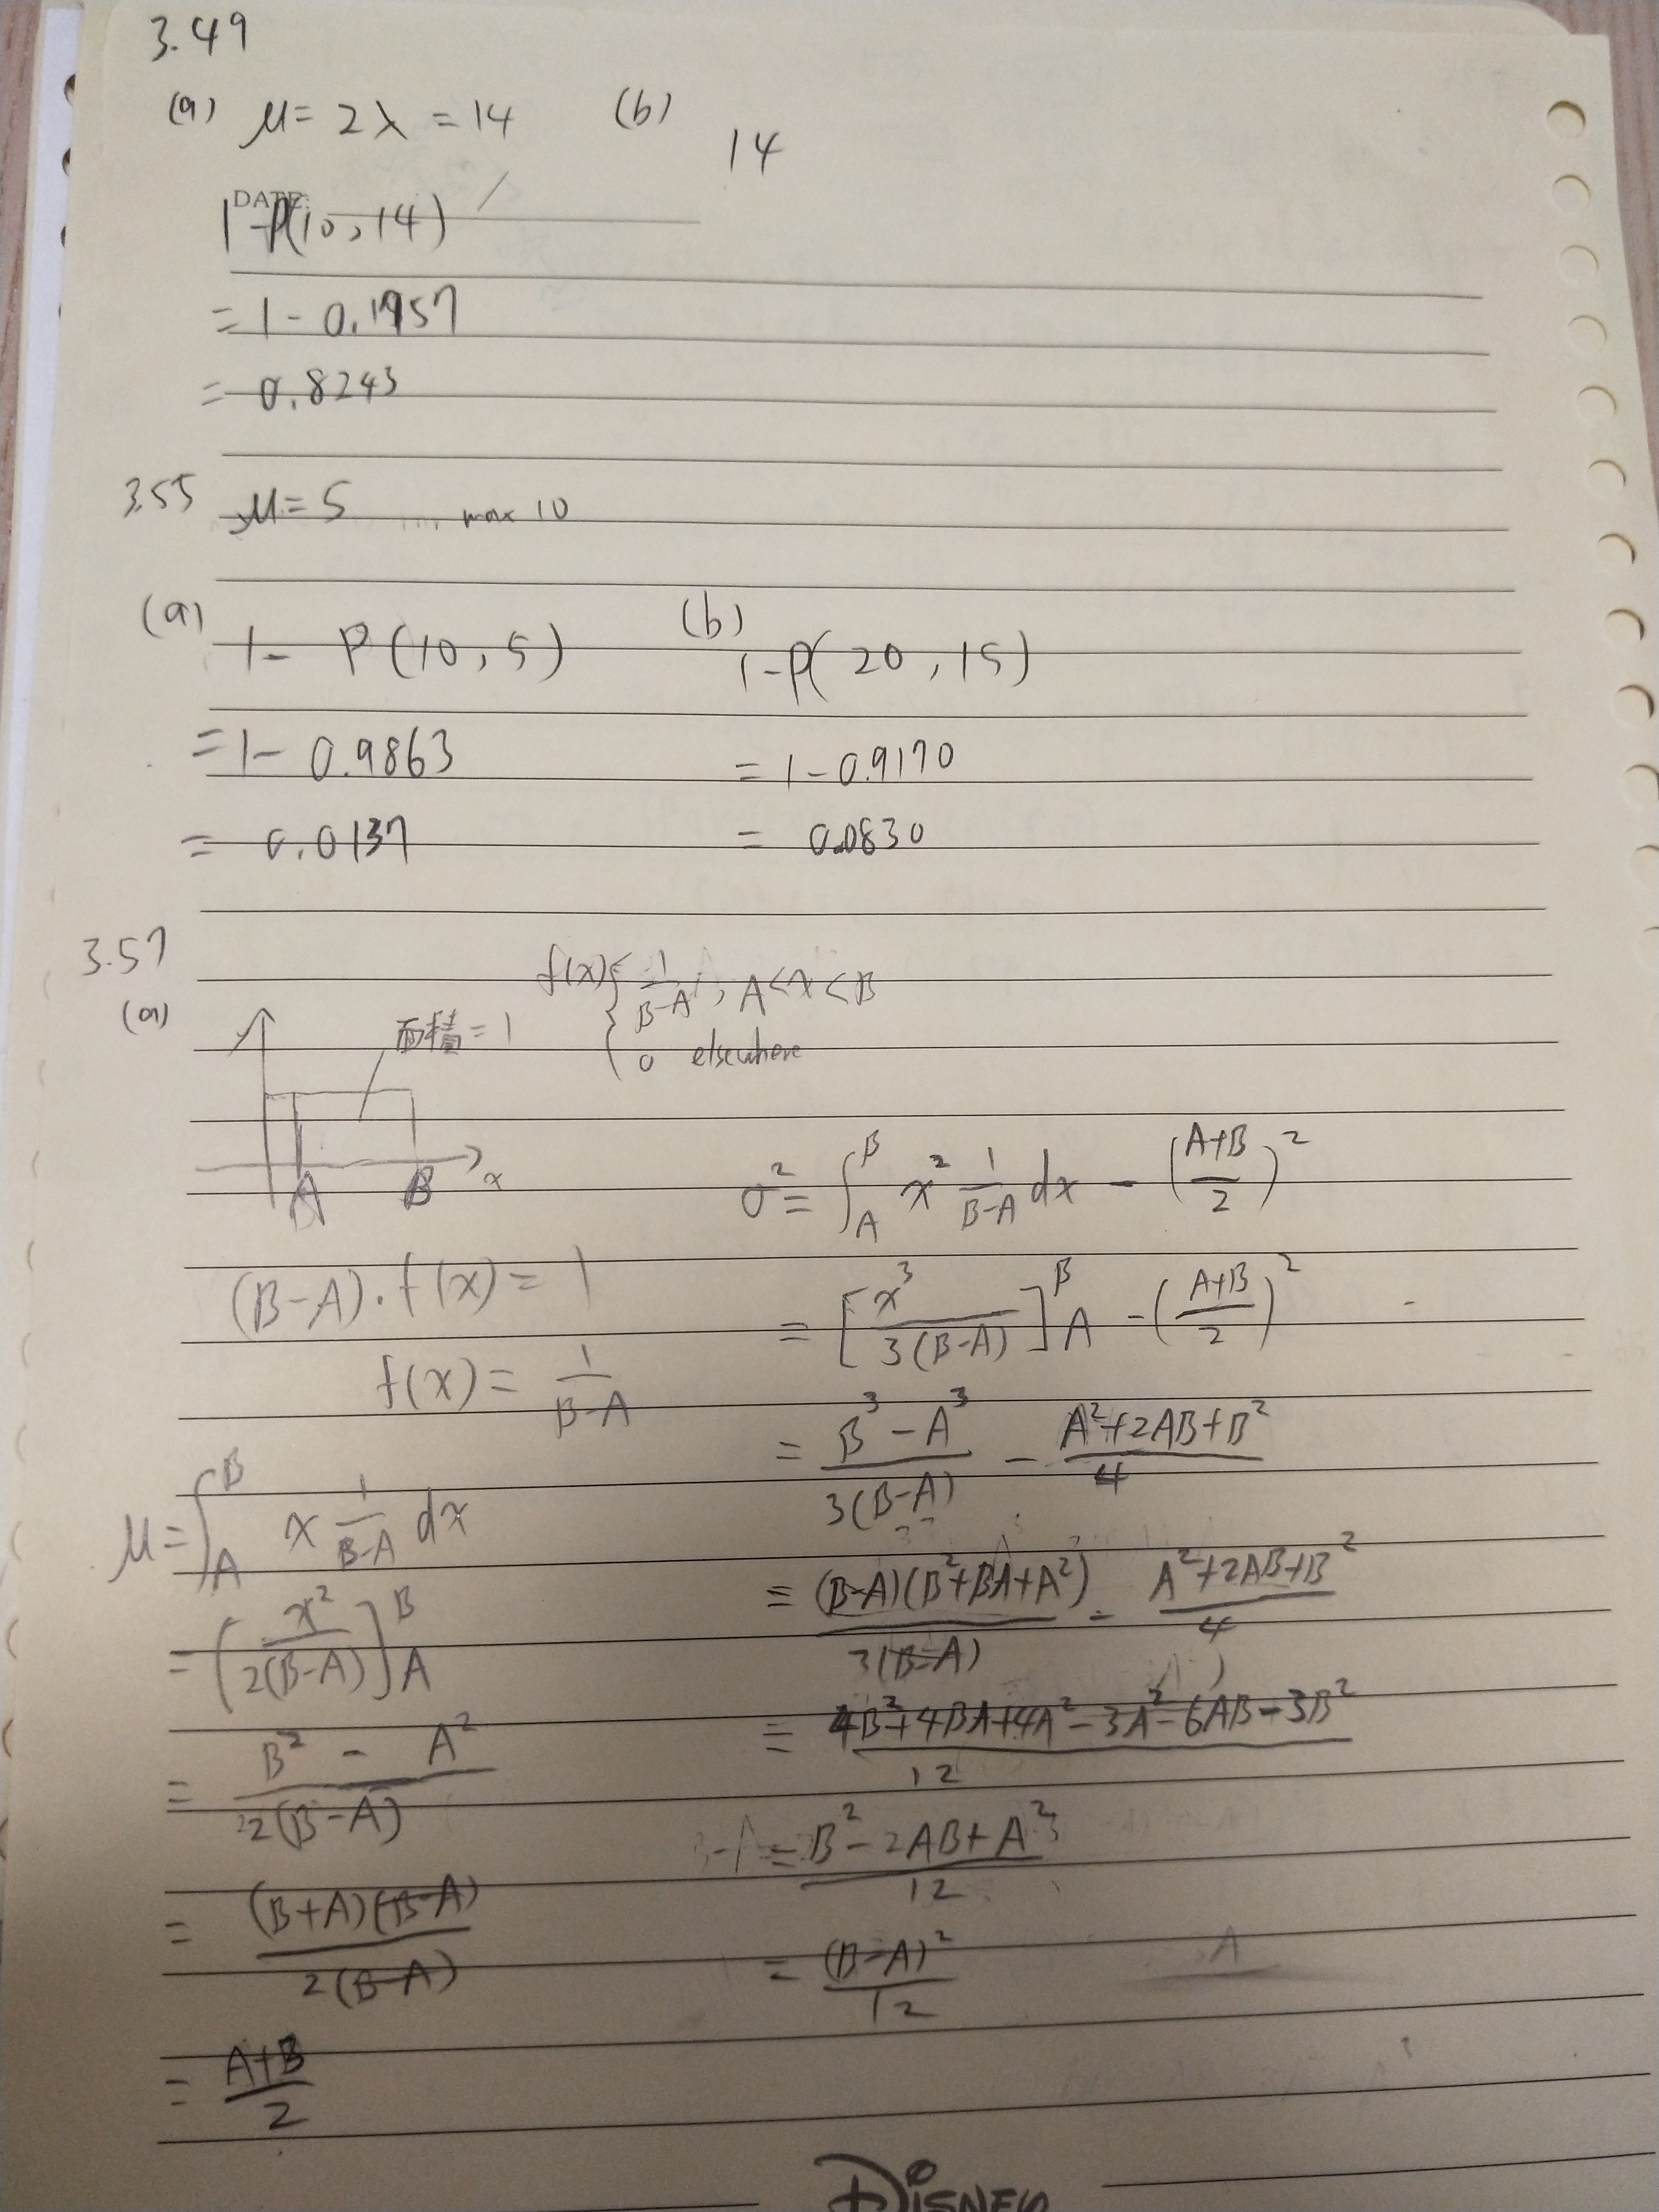 3.49
(a) μ = 2λ = 14 (b) 14
DATE:
1-P(10,14)
= 1 - 0.1757
= 0.8243
3.55 μ = 5 max 10
(a) 1 - P(10,5) (b) 1-P(20,15)
= 1 - 0.9863 = 1 - 0.9170
= 0.0137 = 0.0830
3.57
(a)
面積 = 1
f(x) { 1/(B-A), A<x<B
0 elsewhere
A B x
(B-A)·f(x) = 1
f(x) = 1/(B-A)
μ = ∫_A^B x 1/(B-A) dx
= [x²/2(B-A)]_A^B
= (B² - A²)/2(B-A)
= (B+A)(B-A)/2(B-A)
= (A+B)/2
σ² = ∫_A^B x² 1/(B-A) dx - ((A+B)/2)²
= [x³/3(B-A)]_A^B - ((A+B)/2)²
= (B³ - A³)/3(B-A) - (A²+2AB+B²)/4
= (B-A)(B²+BA+A²)/3(B-A) - (A²+2AB+B²)/4
= (4B²+4BA+4A²-3A²-6AB-3B²)/12
= (B²-2AB+A²)/12
= (B-A)²/12
DISNEY